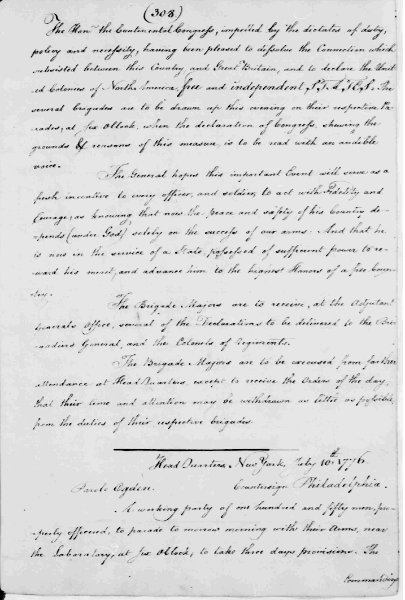 (308)
The Hon. the Continental Congress, impelled by the dictates of duty,
policy and necessity, having been pleased to dissolve the Connection which
subsisted between this Country, and Great Britain, and to declare the Unit
ed Colonies of North America, free and independent STATES: The
several brigades are to be drawn up this evening on their respective Pa
rades, at Six OClock, when the declaration of Congress, shewing the
grounds & reasons of this measure, is to be read with an audible
voice.
The General hopes this important Event will serve as a
fresh incentive to every officer, and soldier, to act with Fidelity and
Courage, as knowing that now the peace and safety of his Country de-
pends (under God) solely on the success of our arms: And that he
is now in the service of a State, possessed of sufficient power to re-
ward his merit, and advance him to the highest Honors of a free Coun-
try.
The Brigade Majors are to receive, at the Adjutant
Generals Office, several of the Declarations to be delivered to the Bri-
gadiers General, and the Colonels of regiments.
The Brigade Majors are to be excused from farther
attendance at Head Quarters, except to receive the Orders of the day,
that their time and attention may be withdrawn as little as possible,
from the duties of their respective brigades.
Head Quarters, New York, July 10th 1776.
Parole Ogden. Countersign Philadelphia.
A working party of one hundred and fifty men, pro-
perly officered, to parade to morrow morning with their Arms, near
the Laboratory, at Six OClock, to take three days provisions. The
Commanding